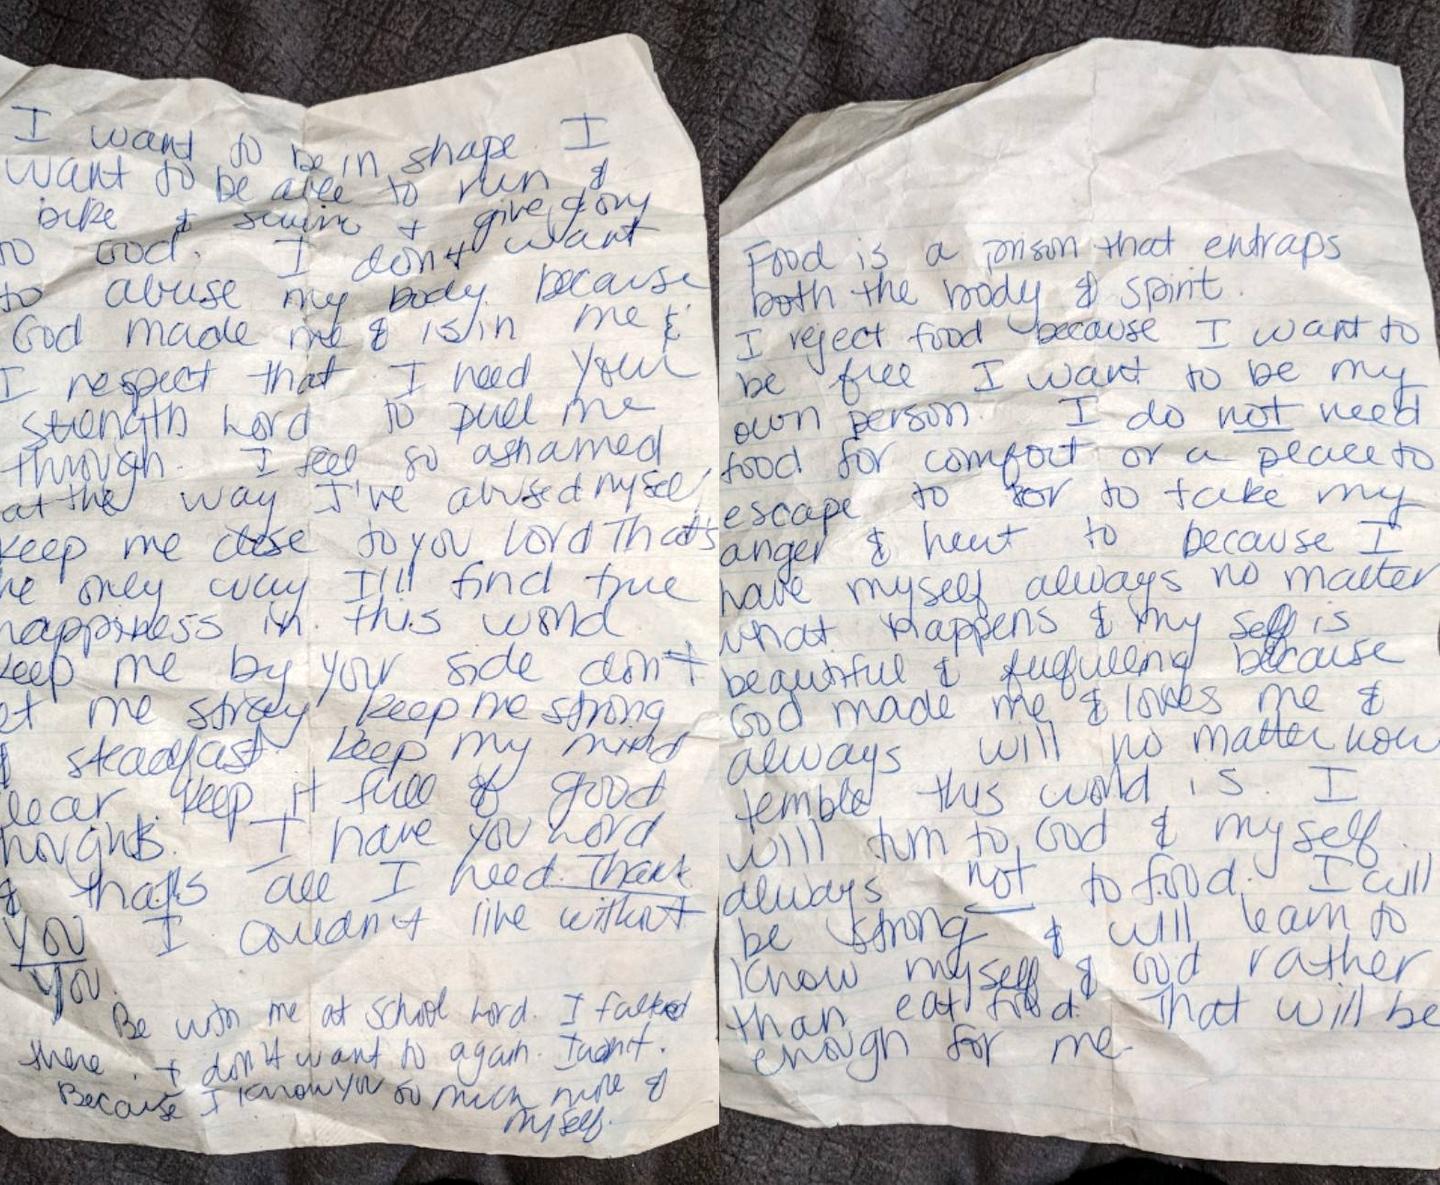 I want to be in shape. I
want to be able to run &
bike & swim & give glory
to God. I don't want
to abuse my body because
God made me & is in me &
I respect that. I need your
strength Lord to pull me
through. I feel so ashamed
at the way I've abused myself
keep me close to you Lord That's
he only way I'll find true
happiness in this world.
keep me by your side don't
et me stray keep me strong
& steadfast keep my mind
lear keep it full of good
houghts. I have you Lord
& that's all I need. Thank
you I couldn't live without
you.
Be with me at school Lord. I failed
there & don't want to again. I won't.
Because I know you so much more &
myself.
Food is a prison that entraps
both the body & spirit.
I reject food because I want to
be free I want to be my
own person. I do not need
food for comfort or a place to
escape to or to take my
anger & hurt to because I
have myself always no matter
what happens & my self is
beautiful & fulfilling because
God made me & loves me &
always will no matter how
terrible this world is. I
will turn to God & myself
always not to food. I will
be strong & will learn to
know myself & God rather
than eat food. That will be
enough for me.